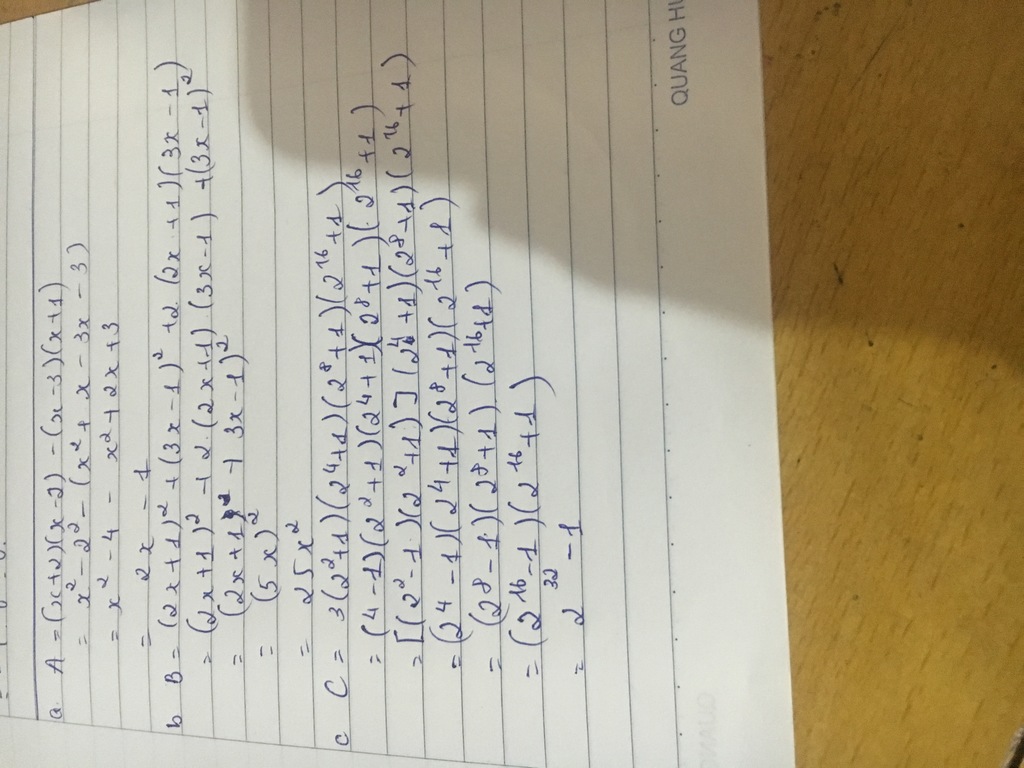 a A = (x+2)(x-2) - (x-3)(x+1)
= x² - 2² - (x² + x - 3x - 3)
= x² - 4 - x² + 2x + 3
= 2x - 1
b B = (2x+1)² + (3x-1)² + 2(2x+1)(3x-1)
= (2x+1)² + 2.(2x+1)(3x-1) + (3x-1)²
= (2x+1 + 3x-1)²
= (5x)²
= 25x²
c C = 3(2²+1)(2⁴+1)(2⁸+1)(2¹⁶+1)
= (4-1)(2²+1)(2⁴+1)(2⁸+1)(2¹⁶+1)
= [(2²-1)(2²+1)](2⁴+1)(2⁸+1)(2¹⁶+1)
= (2⁴-1)(2⁴+1)(2⁸+1)(2¹⁶+1)
= (2⁸-1)(2⁸+1)(2¹⁶+1)
= (2¹⁶-1)(2¹⁶+1)
= 2³² - 1
QUANG HƯ